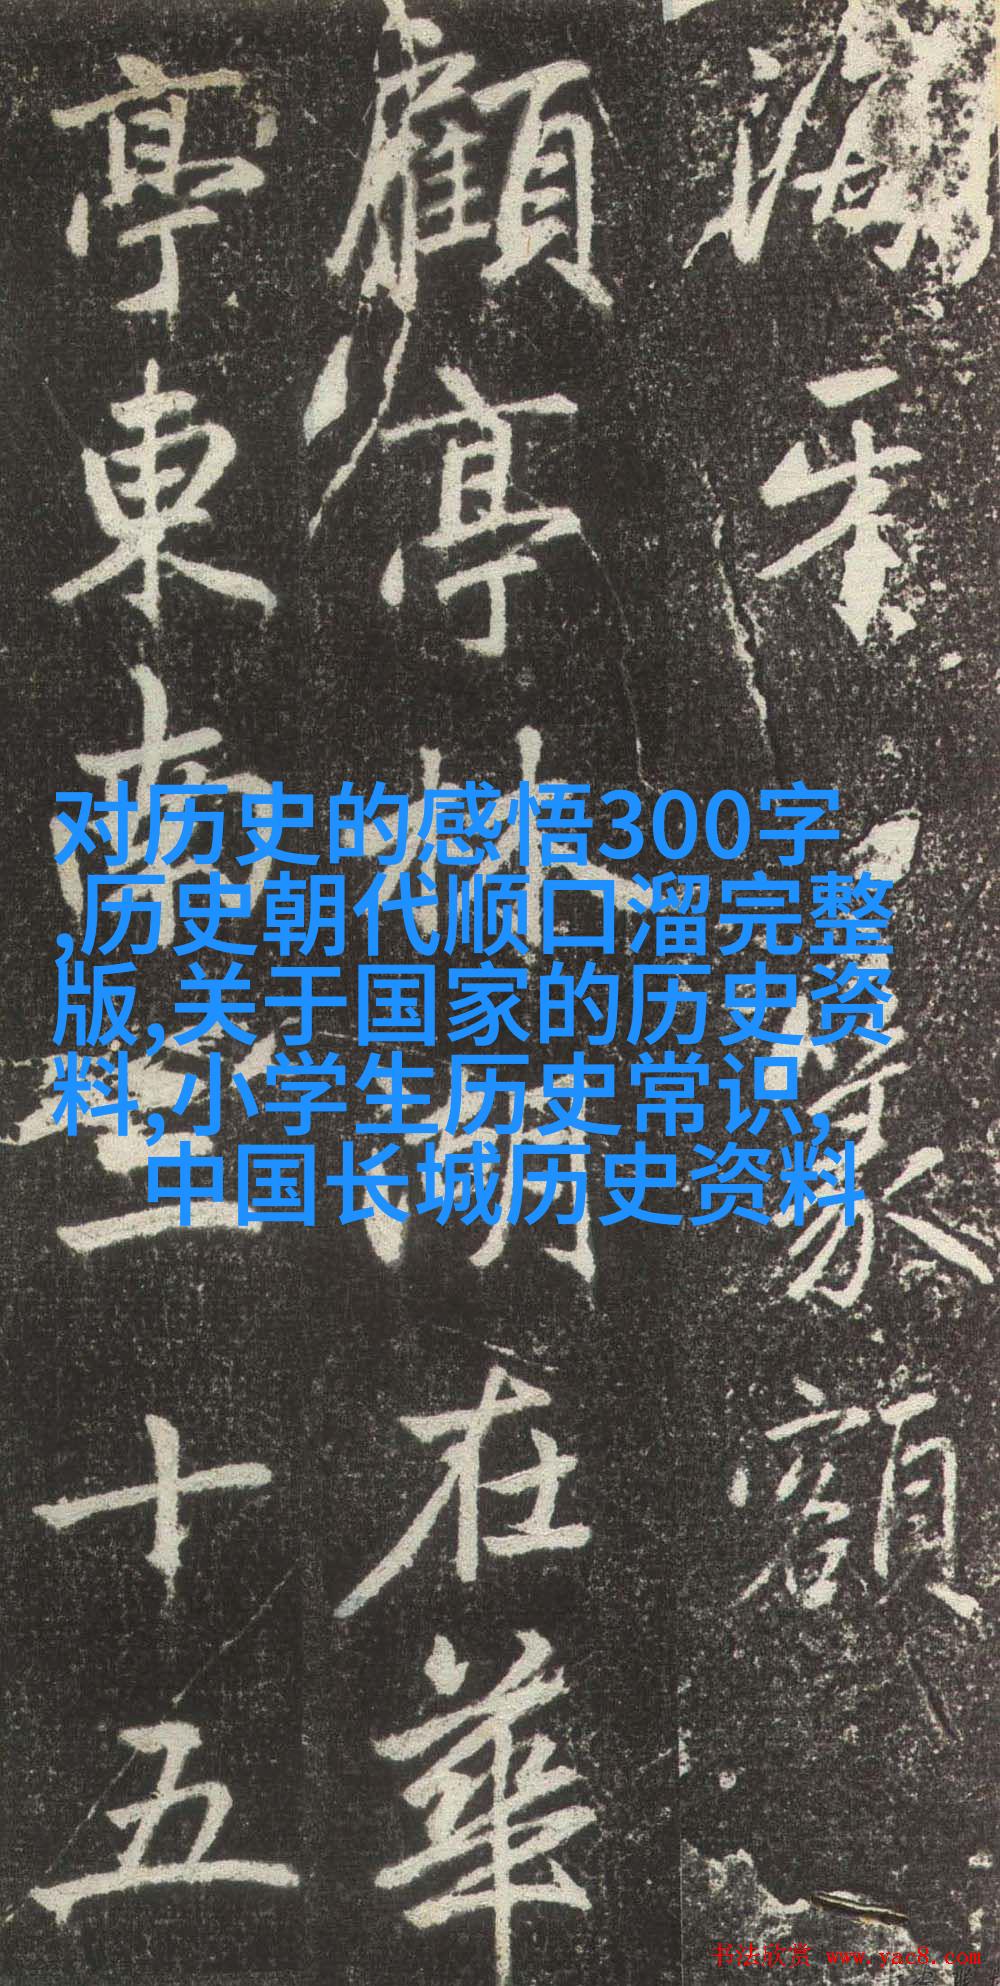 篆額
顧亭林湖在華
亭東南三十五
对历史的感悟300字
,历史朝代顺口溜完整
版,关于国家的历史资
料,小学生历史常识,
中国长城历史资料
书法欣赏 www.yac8.com